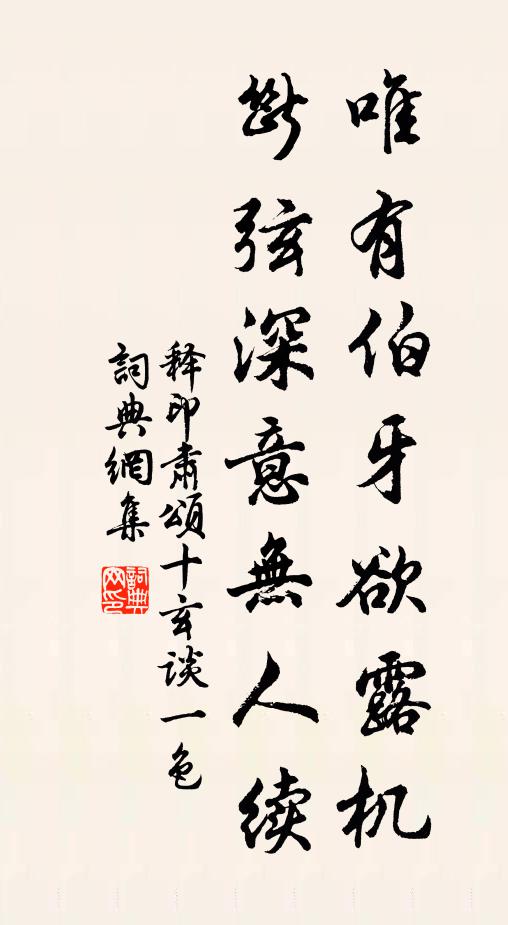 唯有伯牙欲露机
斷弦深意無人续
释印肃頌十玄谈一色
詞典網集
詞典
网印